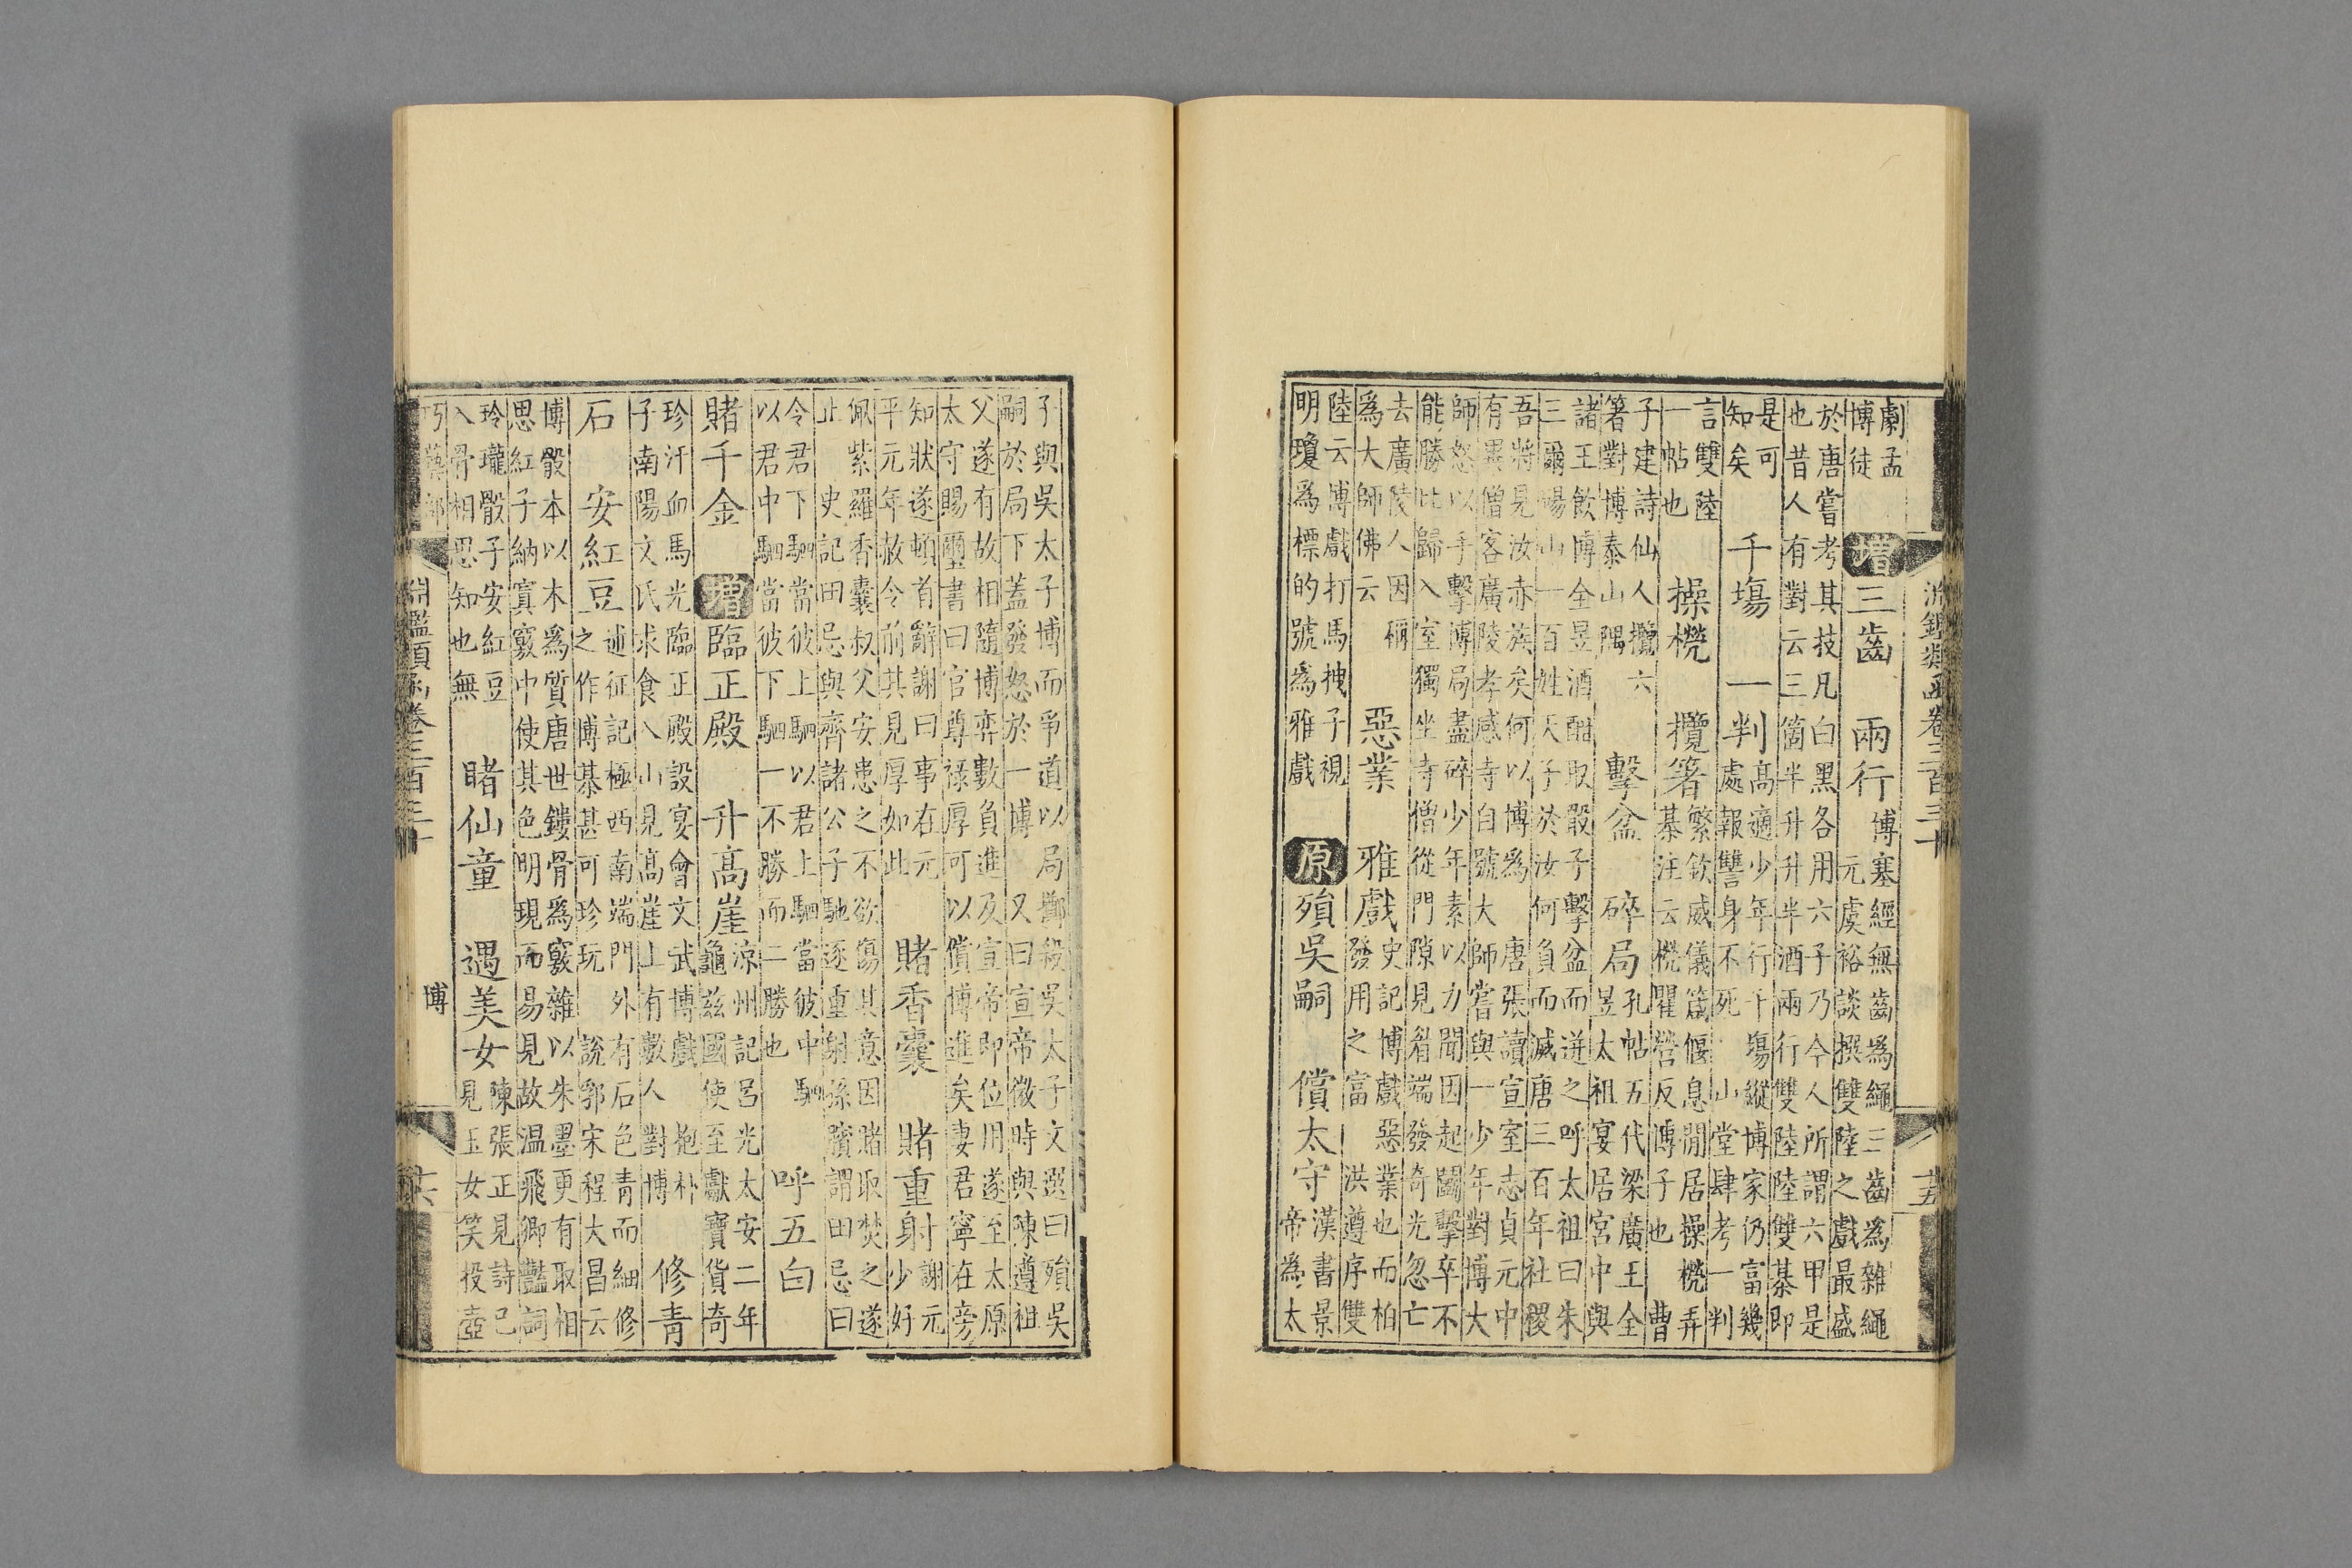 劇孟
博徒
增三齒　兩行
博塞經無齒爲繩三齒爲雜繩
元虞裕談撰雙陸之戲最盛
於唐嘗考其技凡白黑各用六子乃今人所謂六甲是
也昔人有對云三箇半升升半酒兩行雙陸陸雙棊即
是可
知矣
千塲　一判
高適少年行千塲縱博家仍富幾
處報讐身不死　山堂肆考一判
言雙陸
一帖也
操櫈　攬箸
繁欽威儀箴偃息閒居操櫈弄
棊注云櫈瞿營反博子也　曹
子建詩仙人攬六
箸對博泰山隅
擊盆　碎局
孔帖五代梁廣王全
昱太祖宴居宮中與
諸王飲博全昱酒酣取骰子擊盆而迸之呼太祖曰朱
三爾碭山一百姓天子於汝何負而滅唐三百年社稷
吾將見汝赤族矣何以博爲　唐張讀宣室志貞元中
有異僧客廣陵孝感寺自號大師嘗與一少年對博大
師怒以手擊博局盡碎少年素以力聞因起鬭擊卒不
能勝比歸入室獨坐寺僧從門隙見眉端發奇光忽亡
去廣陵人因稱
爲大師佛云
惡業　雅戲
史記博戲惡業也而柏
發用之富　洪遵序雙
陸云博戲打馬拽子視
明瓊爲標的號爲雅戲
原殞吳嗣　償太守
漢書景
帝爲太
淵鑑類函卷三百三十
十五
子與吳太子博而爭道以局擲殺吳太子文選曰殞吳
嗣於局下蓋發怒於一博　又曰宣帝微時與陳遵祖
父遂有故相隨博弈數負進及宣帝即位用遂至太原
太守賜璽書曰官尊祿厚可以償博進矣妻君寧在旁
知狀遂頓首辭謝曰事在元
平元年赦令前其見厚如此
賭香囊　賭重射
謝元
少好
佩紫羅香囊叔父安患之不欲傷其意因賭取焚之遂
止　史記田忌與齊諸公子馳逐重射孫臏謂田忌曰
令君下駟當彼上駟以君上駟當彼中駟
以君中駟當彼下駟一不勝而二勝也
呼五白
賭千金　增臨正殿　升高崖
涼州記呂光太安二年
龜茲國使至獻寶貨奇
珍汗血馬光臨正殿設宴會文武博戲　抱朴
子南陽文氏求食入山見高崖上有數人對博
修青
石　安紅豆
述征記極西南端門外有石色青而細修
之作博棊甚可珍玩　說郛宋程大昌云
博骰本以木爲質唐世鏤骨爲竅雜以朱墨更有取相
思紅子納寘竅中使其色明現而易見故温飛卿豔詞
玲瓏骰子安紅豆
入骨相思知也無
賭仙童　遇美女
陳張正見詩已
見玉女笑投壺
巧藝部
淵鑑類函卷三百三十
博
十六